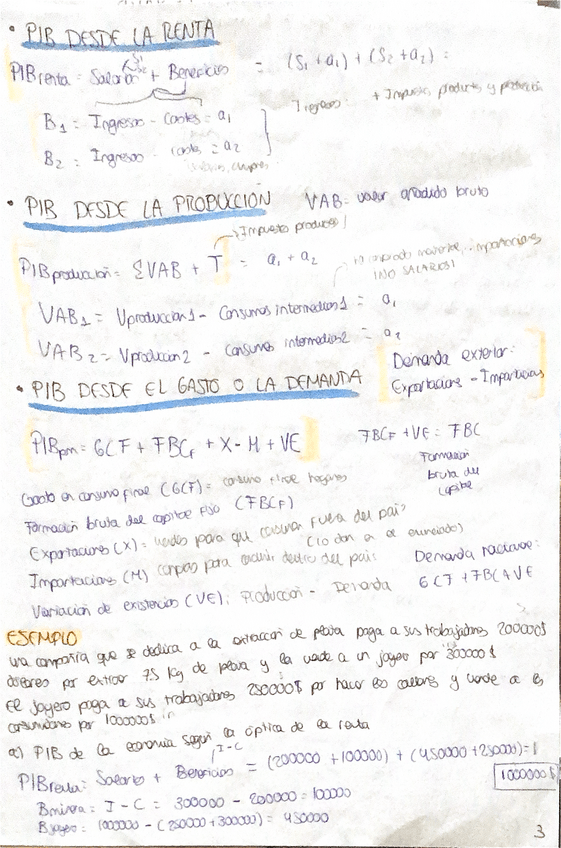 • PIB DESDE LA RENTA
PIBrenta = Salarios + Beneficios = (S₁ + a₁) + (S₂ + a₂) =
Ingresos: + Impuestos productos y producción
B₁ = Ingresos - Costes = a₁
B₂ = Ingresos - Costes = a₂
• PIB DESDE LA PRODUCCIÓN VAB = valor añadido bruto
Impuestos productos
PIBproducción = ΣVAB + T = a₁ + a₂
¡NO SALARIOS!
VAB₁ = Vproduccion1 - Consumos intermedios1 = a₁
VAB₂ = Vproduccion2 - Consumos intermedios2 = a₂
• PIB DESDE EL GASTO O LA DEMANDA
Demanda exterior:
Exportaciones - Importaciones
PIBpm = GCF + FBCF + X - M + VE
FBCF + VE = FBC
Formación
bruta del
capital
Gasto en consumo final (GCF) = consumo final hogares
Formación bruta del capital fijo (FBCF)
Exportaciones (X) = vendes para que consuman fuera del país
(lo dan en el enunciado)
Importaciones (M) compras para consumir dentro del país
Variación de existencias (VE): Producción - Demanda
Demanda nacional:
GCF + FBC + VE
EJEMPLO
Una compañía que se dedica a la extracción de plata paga a sus trabajadores 200000$
dólares por extraer 75 Kg de plata y la vende a un joyero por 300000$
El joyero paga a sus trabajadores 250000$ por hacer los collares y vende a los
consumidores por 1000000$
a) PIB de la economía según la óptica de la renta
I-C
PIBrenta: Salarios + Beneficios = (200000 + 100000) + (450000 + 250000) =
1000000$
Bminera = I - C = 300000 - 200000 = 100000
Bjoyero: 1000000 - (250000 + 300000) = 450000
3